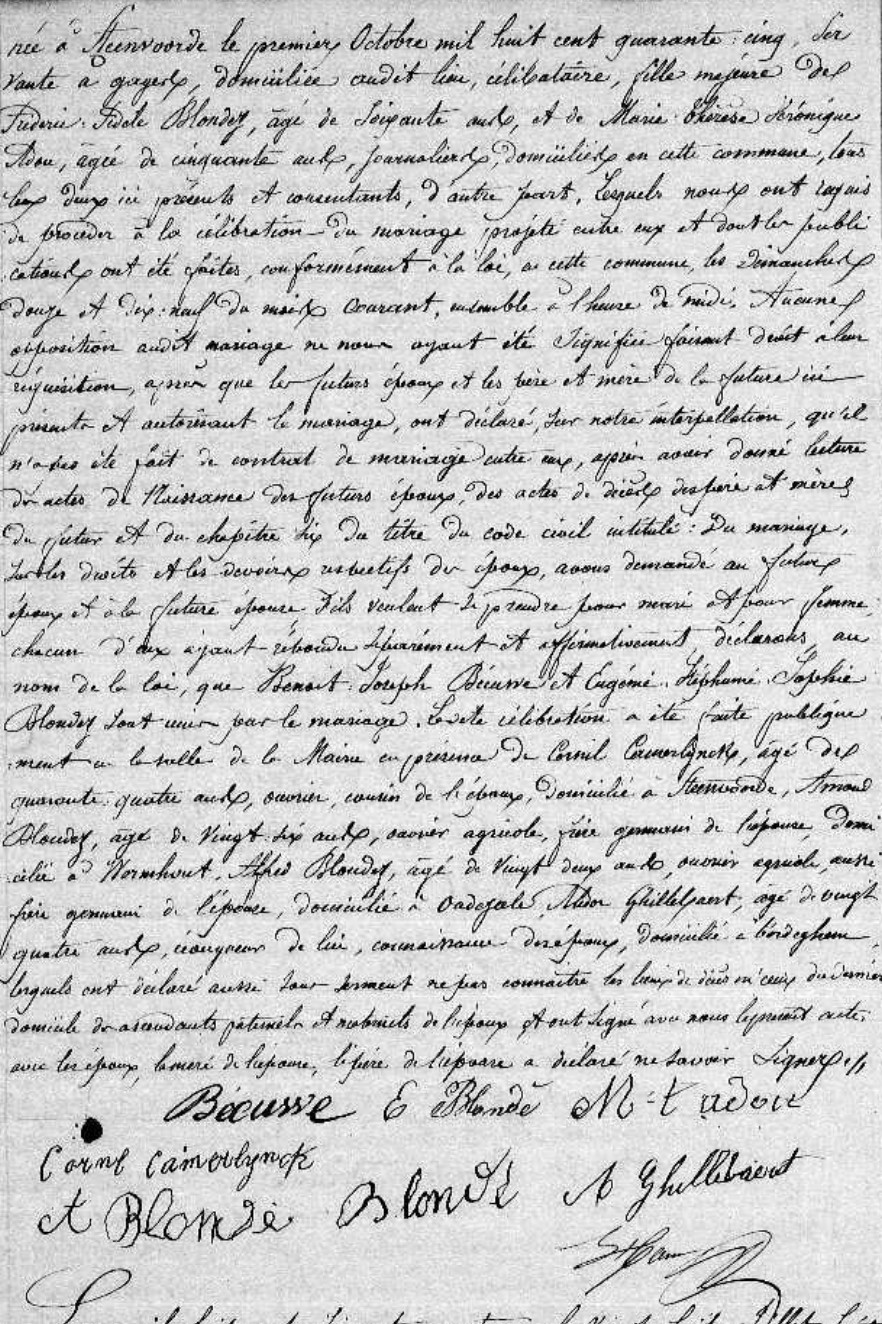 née à Steenvoorde le premier Octobre mil huit cent quarante-cinq, Ser
vante à gages, domiciliée audit lieu, célibataire, fille majeure de
Fréderic-Fidele Blondez, âgé de Soixante ans, et de Marie Thérèse Véronique
Adou, âgée de cinquante ans, journaliers, domiciliés en cette commune, tous
les deux ici présents et consentants, d'autre part, Lesquels nous ont requis
de procéder à la célébration du mariage projeté entre eux et dont les publi
cations ont été faites, conformément à la loi, en cette commune, les Dimanches
douze et dix-neuf du mois Courant, ensemble à l'heure de midi. Aucune
opposition audit mariage ne nous ayant été Signifiée faisant droit à leur
réquisition, après que les futurs époux et les père et mère de la future ici
présents et autorisant le mariage, ont déclaré, Sur notre interpellation, qu'il
n'a pas été fait de contrat de mariage entre eux, après avoir donné lecture
des actes de Naissance des futurs époux, des actes de décès des père et mère
du futur et du chapître Six du titre du code civil intitulé: Du mariage,
Sur les droits et les devoirs respectifs des époux, avons demandé au futur
époux et à la future épouse S'ils veulent Se prendre pour mari et pour femme,
chacun d'eux ayant répondu Séparément et affirmativement, déclarons, au
nom de la loi, que Benoit Joseph Bécusse et Eugénie Stéphanie Sophie
Blondez Sont unis par le mariage. Cette célébration a été faite publique
ment en la salle de la Mairie en présence de Cornil Camerlynck, âgé de
quarante-quatre ans, ouvrier, cousin de l'époux, Domicilié à Steenvoorde, Amand
Blondez, âgé de Vingt Six ans, ouvrier agricole, frère germain de l'épouse, Domi
cilié à Wormhout, Alfred Blondez, âgé de Vingt deux ans, ouvrier agricole, aussi
frère germain de l'épouse, domicilié à Oudezeele, Ghillebaert, agé de vingt
quatre ans, de lin, connaissance des époux, Domicilié à
lesquels ont déclaré aussi Sous Serment ne pas connaître les lieux de décès ni ceux du dernier
domicile des ascendants paternels et maternels de l'époux et ont Signé avec nous le présent acte,
avec les époux, la mère de l'épouse, le père de l'épouse a déclaré ne Savoir Signer.
Bécusse E Blondé M-t adou
Cornl Camerlynck
A Blondé Blondé A Ghillebaert